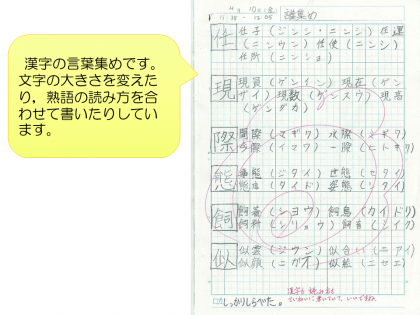 漢字の言葉集めです。
文字の大きさを変えた
り，熟語の読み方を合
わせて書いたりしてい
ます。
語集め
任 任子（ジンシ・ニンシ） 任運
（ニンウン） 任使（ニンシ）
任所（ニンショ）
現 現員（ゲンイン） 現在（ゲン
ザイ） 現数（ゲンスウ） 現高
（ゲンダカ）
際 間際（マギワ） 水際（ミギワ）
今際（イマワ） 一際（ヒトキワ）
態 事態（ジタイ） 世態（セタイ）
態度（タイド） 姿態（シタイ）
飼 飼養（シヨウ） 飼鳥（カイドリ）
飼料（シリョウ） 飼育（シイク）
似 似雲（ジウン） 似合い（ニアイ）
似顔（ニガオ） 似絵（ニセエ）
しっかりしらべた。
漢字の読み方も
ていねいに書いていて、いいですね